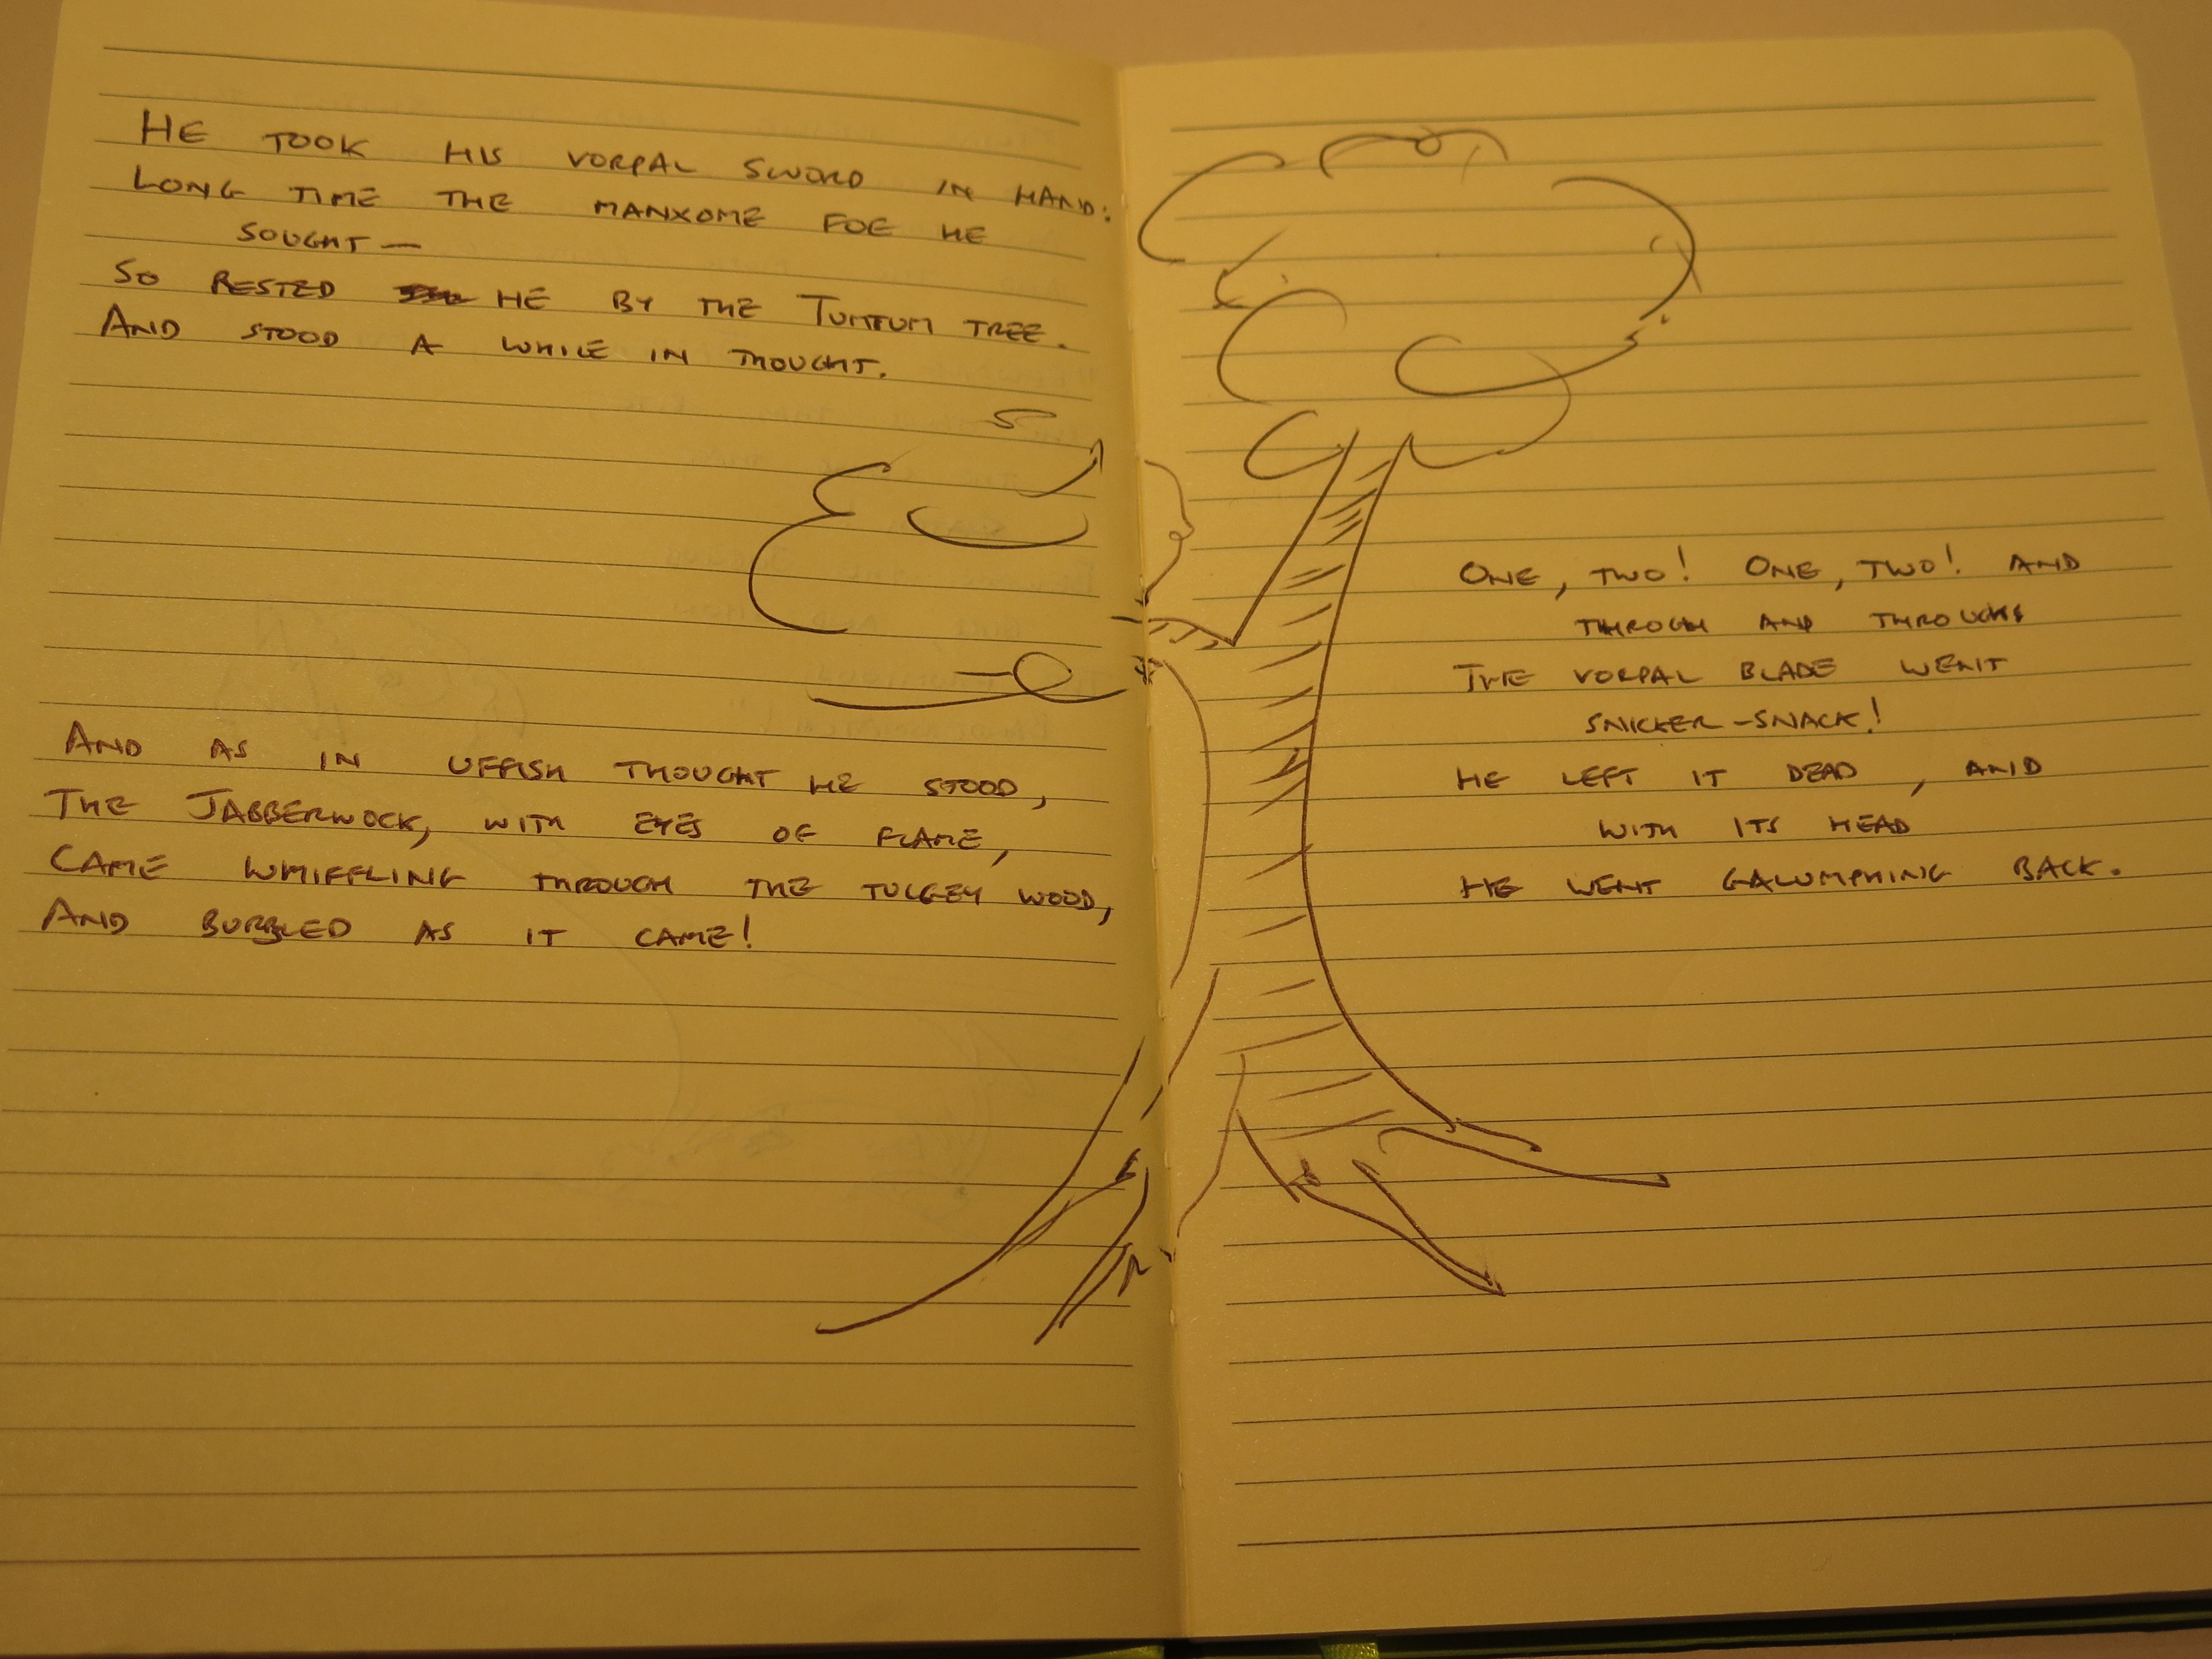 HE TOOK HIS VORPAL SWORD IN HAND:
LONG TIME THE MANXOME FOE HE
SOUGHT —
SO RESTED HE BY THE TUMTUM TREE.
AND STOOD A WHILE IN THOUGHT.
AND AS IN UFFISH THOUGHT HE STOOD,
THE JABBERWOCK, WITH EYES OF FLAME,
CAME WHIFFLING THROUGH THE TULGEY WOOD,
AND BURBLED AS IT CAME!
ONE, TWO! ONE, TWO! AND
THROUGH AND THROUGH
THE VORPAL BLADE WENT
SNICKER-SNACK!
HE LEFT IT DEAD, AND
WITH ITS HEAD
HE WENT GALUMPHING BACK.